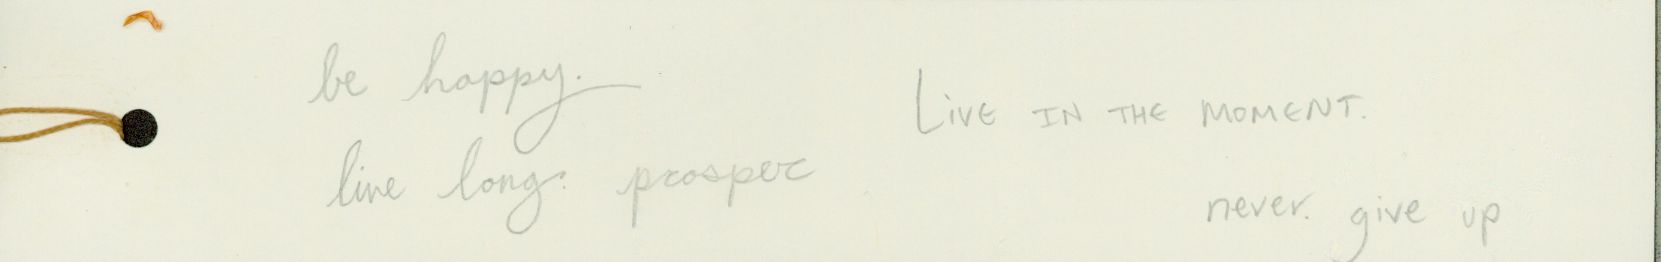 be happy.
live long. prosper
Live in the moment.
never. give up